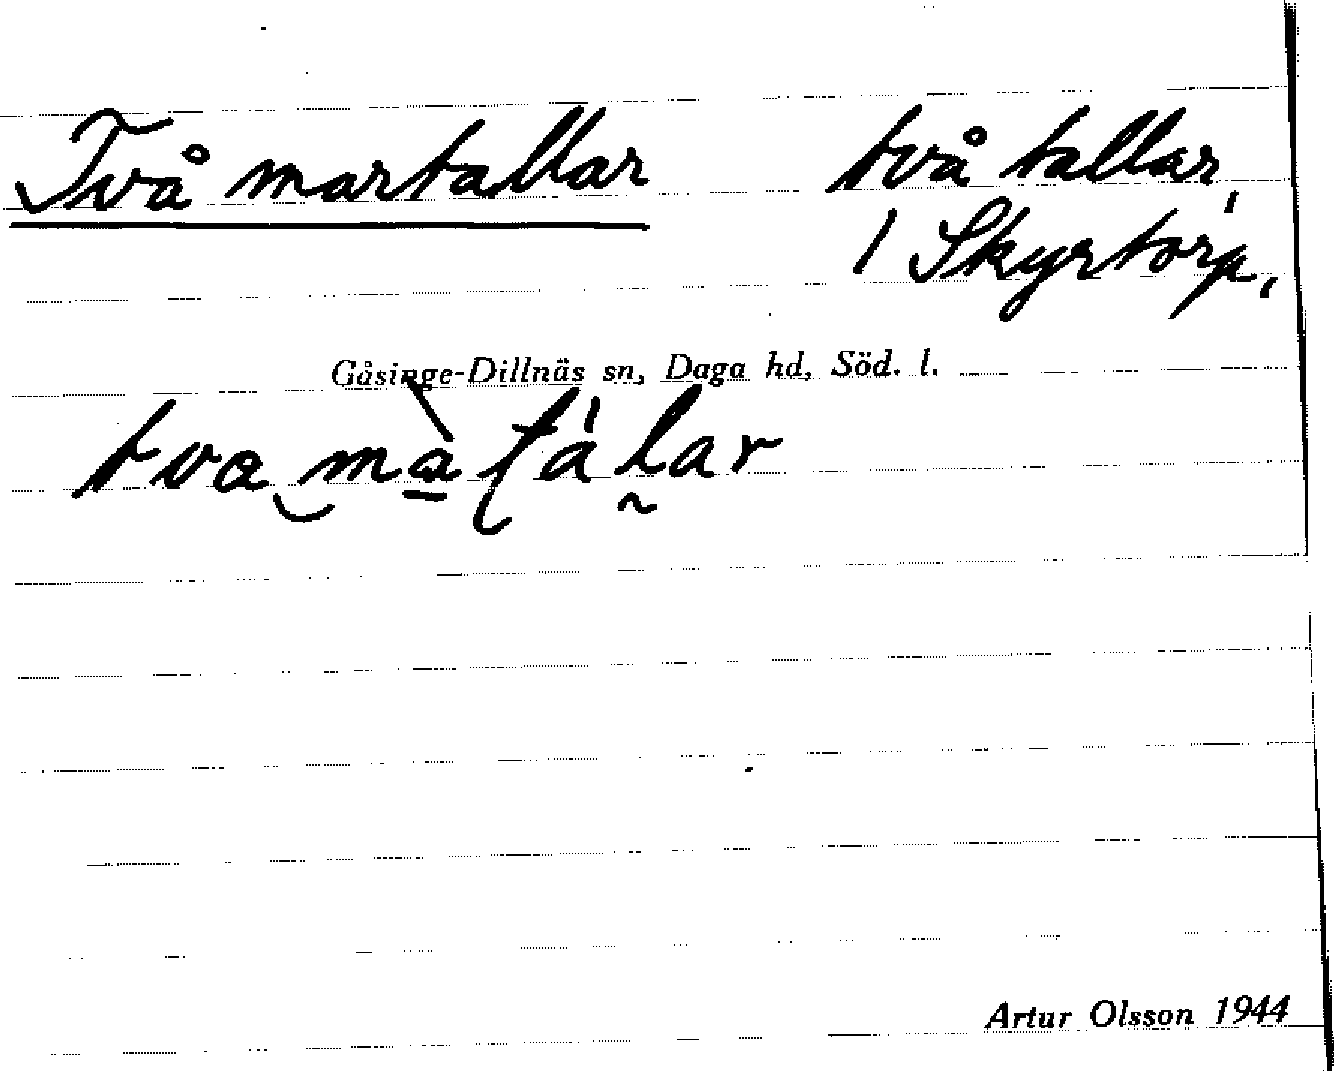 Två martallar
två tallar,
/ Skyrtorp,
Gåsinge-Dillnäs sn, Daga hd, Söd. l.
Artur Olsson 1944